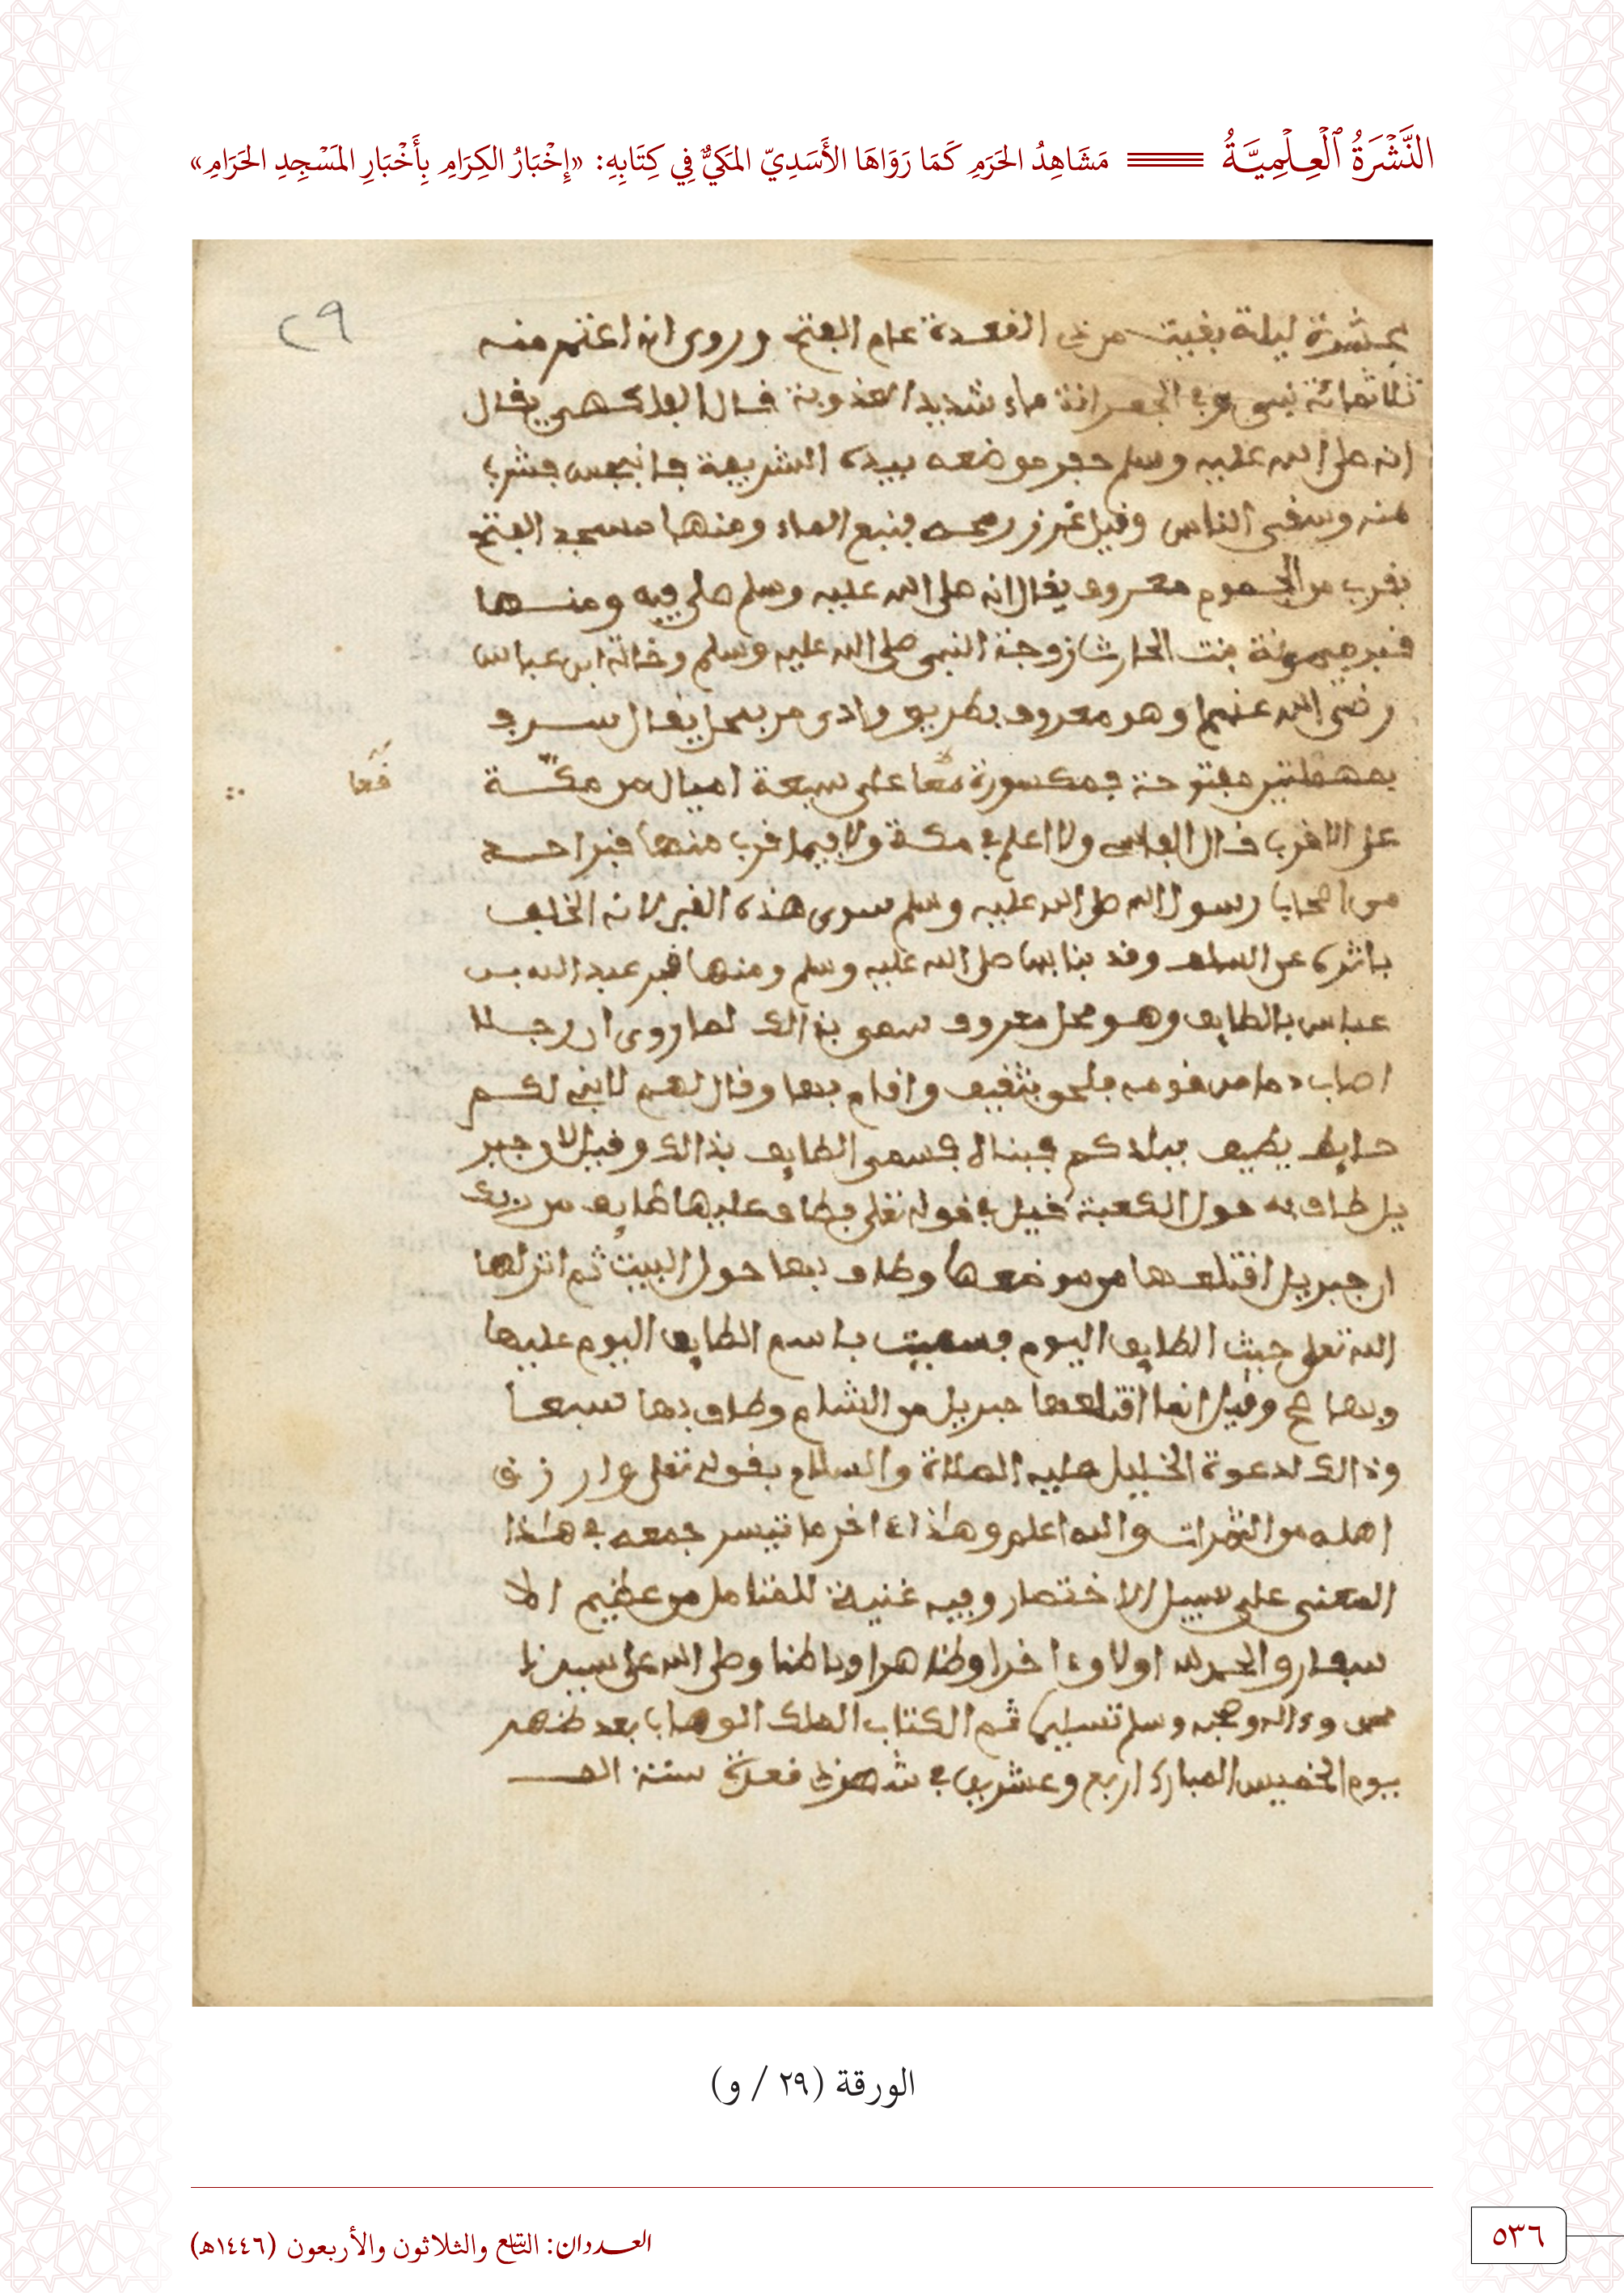 النَّشْرَةُ ٱلْعِلْمِيَّةُ مَشَاهِدُ الحَرَمِ كَمَا رَوَاهَا الأَسَدِيّ المَكيُّ فِي كِتَابِهِ: «إِخْبَارُ الكِرَامِ بِأَخْبَارِ المَسْجِدِ الحَرَامِ»
٢٩
عشرة ليلة بقيت من ذى القعدة عام الفتح وروى انه اعتمر منه
ثلاثمائة نبى وفى الجعرانة ماء شديد العذوبة قال الفاكهى يقال
انه صلى الله عليه وسلم حفر موضعه بيده الشريفة فانبجس فشرب
منه وسقى الناس وقيل غرز رمحه فنبع الماء ومنها مسجد الفتح
بقرب من الجموم معروف يقال انه صلى الله عليه وسلم صلى فيه ومنها
قبر ميمونة بنت الحارث زوجة النبى صلى الله عليه وسلم وخالة ابن عباس
رضى الله عنهما وهو معروف بطريق وادى مر بمحل يقال سرف
بمهملتين مفتوحة فمكسورة ففا على سبعة اميال من مكة
ففا
على الاقرب قال الفاسى ولا اعلم فى مكة ولا فيما قرب منها قبر احد
من اصحاب رسول الله صلى الله عليه وسلم سوى هذه القبر لانه الخلف
ياثره عن السلف وقد بنا بها صلى الله عليه وسلم ومنها قبر عبد الله بن
عباس بالطايف وهو محل معروف سمى بذالك لما روى ان رجلا
اصاب دما من قومه فلحق بثقيف واقام بها وقال لهم لابنى لكم
حايط يطيف ببلدكم فبناه فسمى الطايف بذالك وقيل لان جبر
يل طاف به حول الكعبة قيل فى قوله تعلى فطاف عليها طايف من ربك
ان جبريل اقتلعها من موضعها وطاف بها حول البيت ثم انزلها
الله تعلى حيث الطايف اليوم فسميت باسم الطايف اليوم عليها
وبها وقيل انما اقتلعها جبريل من الشام وطاف بها سبعا
وذالك لدعوة الخليل عليه الصلاة والسلام بقوله تعلى وارزق
اهله من الثمرات والله اعلم وهذا ءاخر ما تيسر جمعه فى هذا
المعنى على سبيل الاختصار وفيه غنية للمتامل من عظيم الا
سفار والحمد لله اولا وءاخرا وظاهرا وباطنا وصلى الله على سيدنا
محمد وءاله وصحبه وسلم تسليما تم الكتاب الملك الوهاب بعد ظهر
يوم الخميس المبارك اربع وعشرين فى شهر ذى قعدة سنة
الورقة (٢٩ / و)
العددان: التاسع والثلاثون والأربعون (١٤٤٦هـ)
٥٣٦